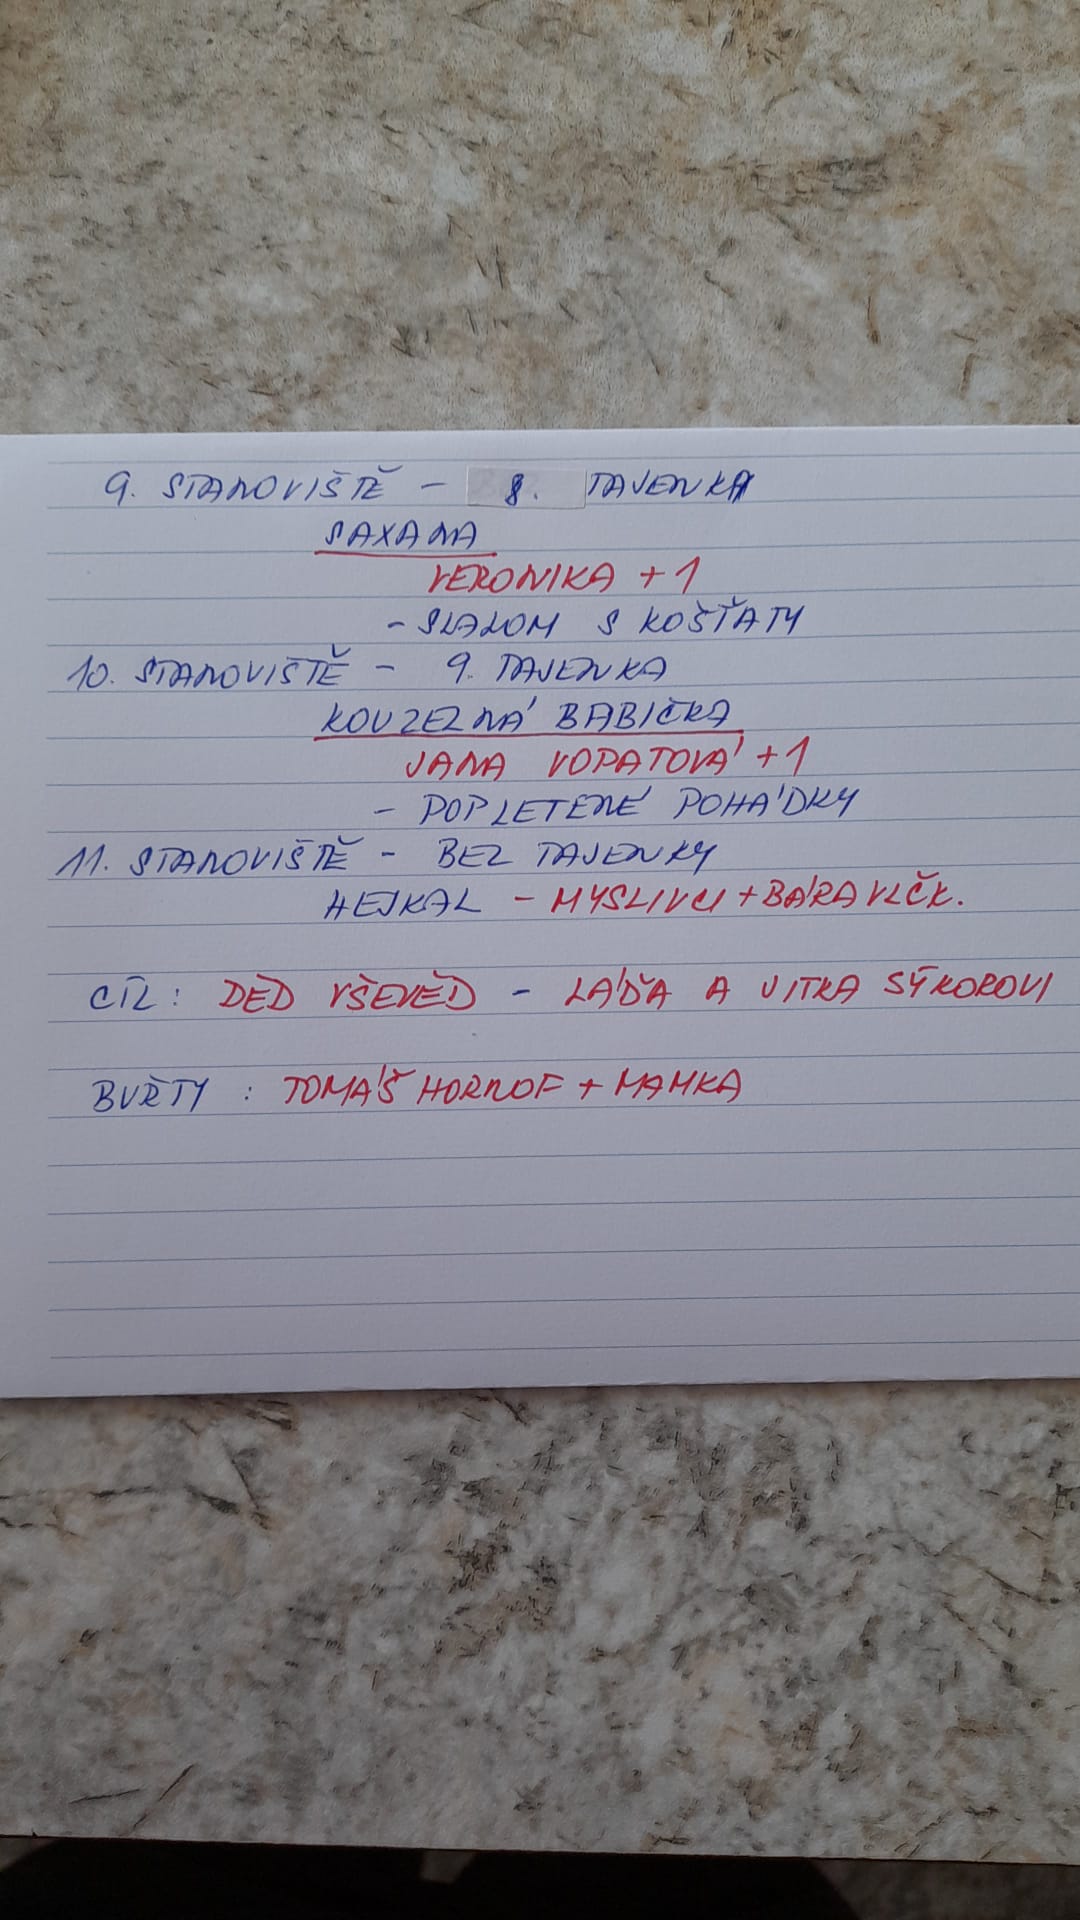 9. STANOVIŠTĚ - 8. TAJENKA
SAXANA
VERONIKA + 1
- SLALOM S KOŠŤATY
10. STANOVIŠTĚ - 9. TAJENKA
KOUZELNÁ BABIČKA
JANA VOPATOVÁ + 1
- POPLETENÉ POHÁDKY
11. STANOVIŠTĚ - BEZ TAJENKY
HEJKAL - MYSLIVCI + BÁRA VLČK.
CÍL: DĚD VŠEVĚD - LÁĎA A VITKA SÝKOROVI
BUŘTY : TOMÁŠ HORNOF + MAMKA